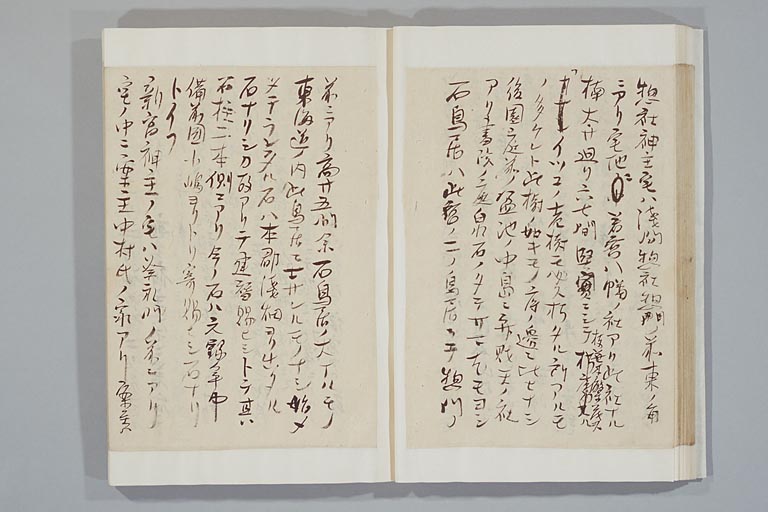 惣社神主宅ハ浅間惣社惣門ノ前東ノ角
ニアリ宅地ニ若宮八幡ノ社アリ此社ナル
楠大サ廻リ六七間堅實ニシテ
イツコノ老樹モ多ク朽タル所アルモ
ノ多ケレト此樹ノ如キモノ府ノ邊ニ比ヒナシ
後園ニ庭前ノ盆池ノ中島ニ弁財天ノ社
アリ書院ノ庭泉石ノタテサマ尤モヨシ
石鳥居ハ此宮ノ二ノ鳥居ニテ惣門ノ
前ニアリ高サ五間余石鳥居ノ大ナルモノ
東海道ノ内此鳥居ニマサレルモノナシ始メ
メテラレシ石ハ本郡浅畑ヨリ出タル
石ナリシカ故アリテ建替賜ヒシトテ其
石柱二本側ニアリ今ノ石ハ元録年中
備前國小嶋ヨリトリ寄賜ヒシ石ナリ
トイフ
新宮神主ノ宅ハ惣社門ノ前ニアリ
宅ノ中ニ
中村氏ノ家アリ